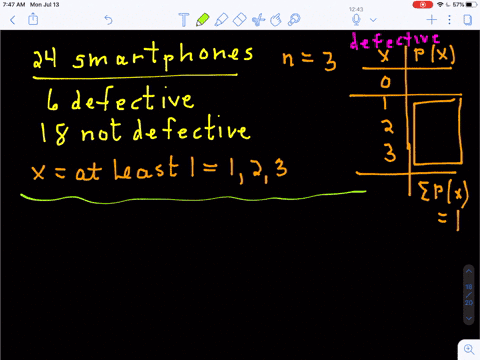 7:47 AM Mon Jul 13
57%
12:43
24 smartphones
6 defective
18 not defective
x = at least 1 = 1, 2, 3
n = 3
defective
x P(x)
0
1
2
3
ΣP(x)
= 1
18
20